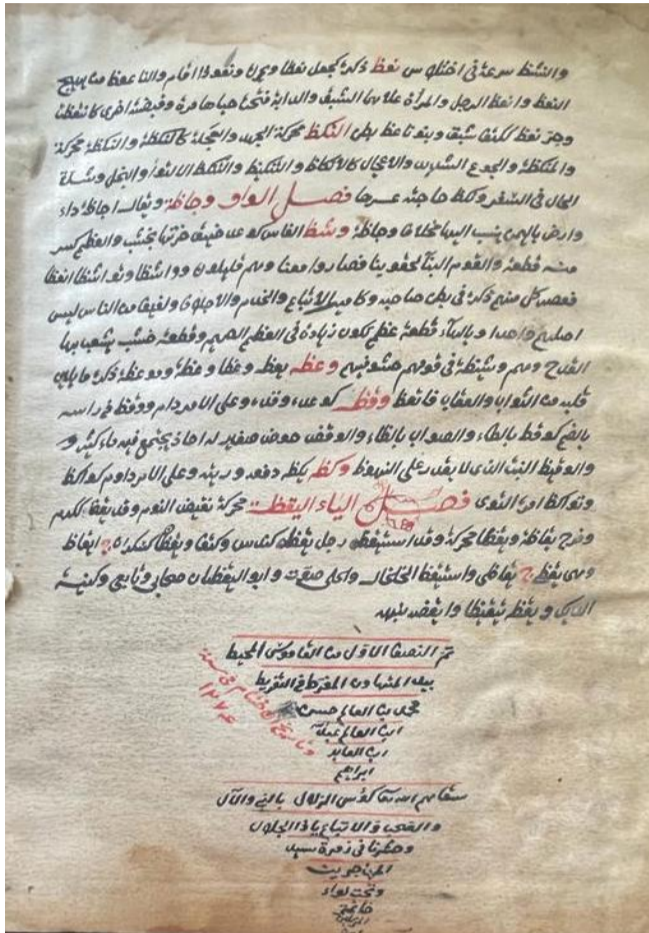 والنشظ سرعة في اختلاس نعظ ذكره كجعل نعظا ويحرك ونعوظا قام والناعظ ما يهيج
النعظ وانعظ الرجل والمرأة علاهما الشبق والدابة فتحت حياها مرة وقبضته اخرى كانتعظت
وحر نعظ ككتف شبق وبنو ناعظ بطن النكظ محركة الجهد والعجلة كالنكظة والنكظة محركة
والمنكظة والجوع الشديد والاعجال كالانكاظ والتنكيظ والتنكظ الالتواء والبخل وشدة
الحال في السفر ونكظ حاجته عسرها فصل الواو وجاظة ويقال اجاظة داء
وارض باليمن ينسب اليها مخلاف وجاظة وشظ الفاس كوعد ضيق خرتها بخشب والعظم كسر
منه قطعة والقوم الينا لحقوا بنا فصاروا معنا وهم قليلون وواشظا وتواشظا انعظا
فعصر كل منهم ذكره في بطن صاحبه وكامير الاتباع والخدم والاحلاف ولفيف من الناس ليس
اصلهم واحدا وبالهاء قطعة عظم تكون زيادة في العظم الصميم وقطعة خشب يشعب بها
القدح وهم وشيظة في قومهم حشو فيهم وعظه يعظه وعظا وعظة وموعظة ذكره ما يلين
قلبه من الثواب والعقاب فاتعظ وقظه كوعده وقذه وعلى الامر دام ووقظ في راسه
بالضم كوقط بالطاء والصواب بالطاء والوقظ حوض صغير له اخاذ يجتمع فيه ماء كثير و
والوقيظ المثبت الذي لا يقدر على النهوظ وكظه يكظه دفعه وزبنه وعلى الامر داوم كواكظ
وتواكظ امره التوى فصل الياء اليقظة محركة نقيض النوم وقد يقظ ككرم
وفرح يقاظة ويقظا محركة وقد استيقظ ورجل يقظ كندس وكتف ويقظان كسكران ج ايقاظ
وهي يقظى ج يقاظى واستيقظ الخلخال والحلى صوت وابو اليقظان صحابي وتابعي وكنية
الديك ويقظه تيقيظا وايقظه نبهه
تم النصف الاول من القاموس المحيط
بيد المتهاون المفرط في التفريط
محمد بن العالم حسن
ابن العالم عبد الله
ابن العابد
ابراهيم
سقاهم الله تعا كؤس الزلال بالنبي والآل
والصحب والاتباع ياذا الجلال
وحشرنا في زمرة سيد
المرسلين
وتحت لواء
خاتمة
وتاريخ الاختتام في سنة
١٢٧٤